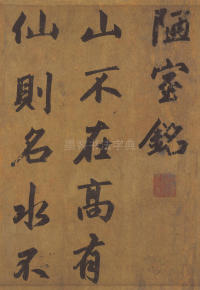 陋室銘
山不在高有
仙則名水不